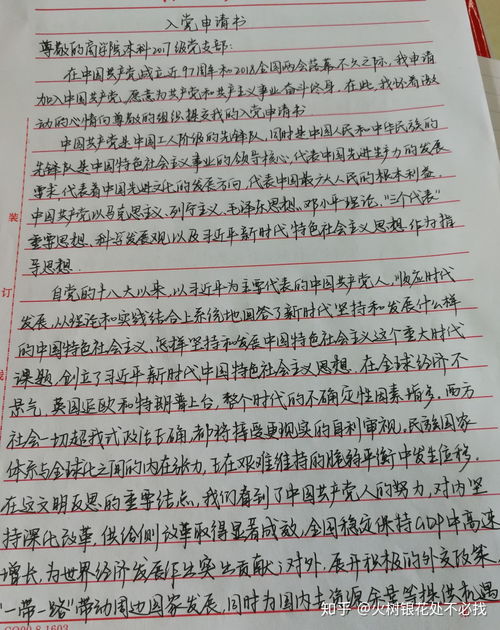 入党申请书
尊敬的商学院本科2017级党支部:
在中国共产党成立近97周年和2018全国两会落幕不久之际,我申请
加入中国共产党,愿意为共产党和共产主义事业奋斗终身。在此,我怀着激
动的心情向尊敬的组织提交我的入党申请书。
中国共产党是中国工人阶级的先锋队,同时是中国人民和中华民族的
先锋队是中国特色社会主义事业的领导核心,代表中国先进生产力的发展
要求,代表着中国先进文化的发展方向,代表中国最广大人民的根本利益。
中国共产党以马克思主义、列宁主义、毛泽东思想、邓小平理论、“三个代表”
重要思想、科学发展观以及习近平新时代特色社会主义思想作为指
导思想。
自党的十八大以来,以习近平为主要代表的中国共产党人,顺应时代
发展,从理论和实践结合上系统地回答了新时代坚持和发展什么样
的中国特色社会主义、怎样坚持和发展中国特色社会主义这个重大时代
课题,创立了习近平新时代中国特色社会主义思想。在全球经济不
景气,英国退欧和特朗普上台,整个时代的不确定性因素增多。西方
社会一切超我式政治正确,都将接受更现实的自利审视。民族国家
体系与全球化之间的内在张力,正在艰难维持的脆弱平衡中发生位移。
在这文明反思的重要结点,我们看到了中国共产党人的努力,对内坚
持深化改革,供给侧改革取得显著成效,全国稳定保持GDP中高速
增长,为世界经济发展作出突出贡献;对外,展开积极的外交政策,
“一带一路”带动周边国家发展,同时为国内
装
订
知乎 @火树银花处不必找